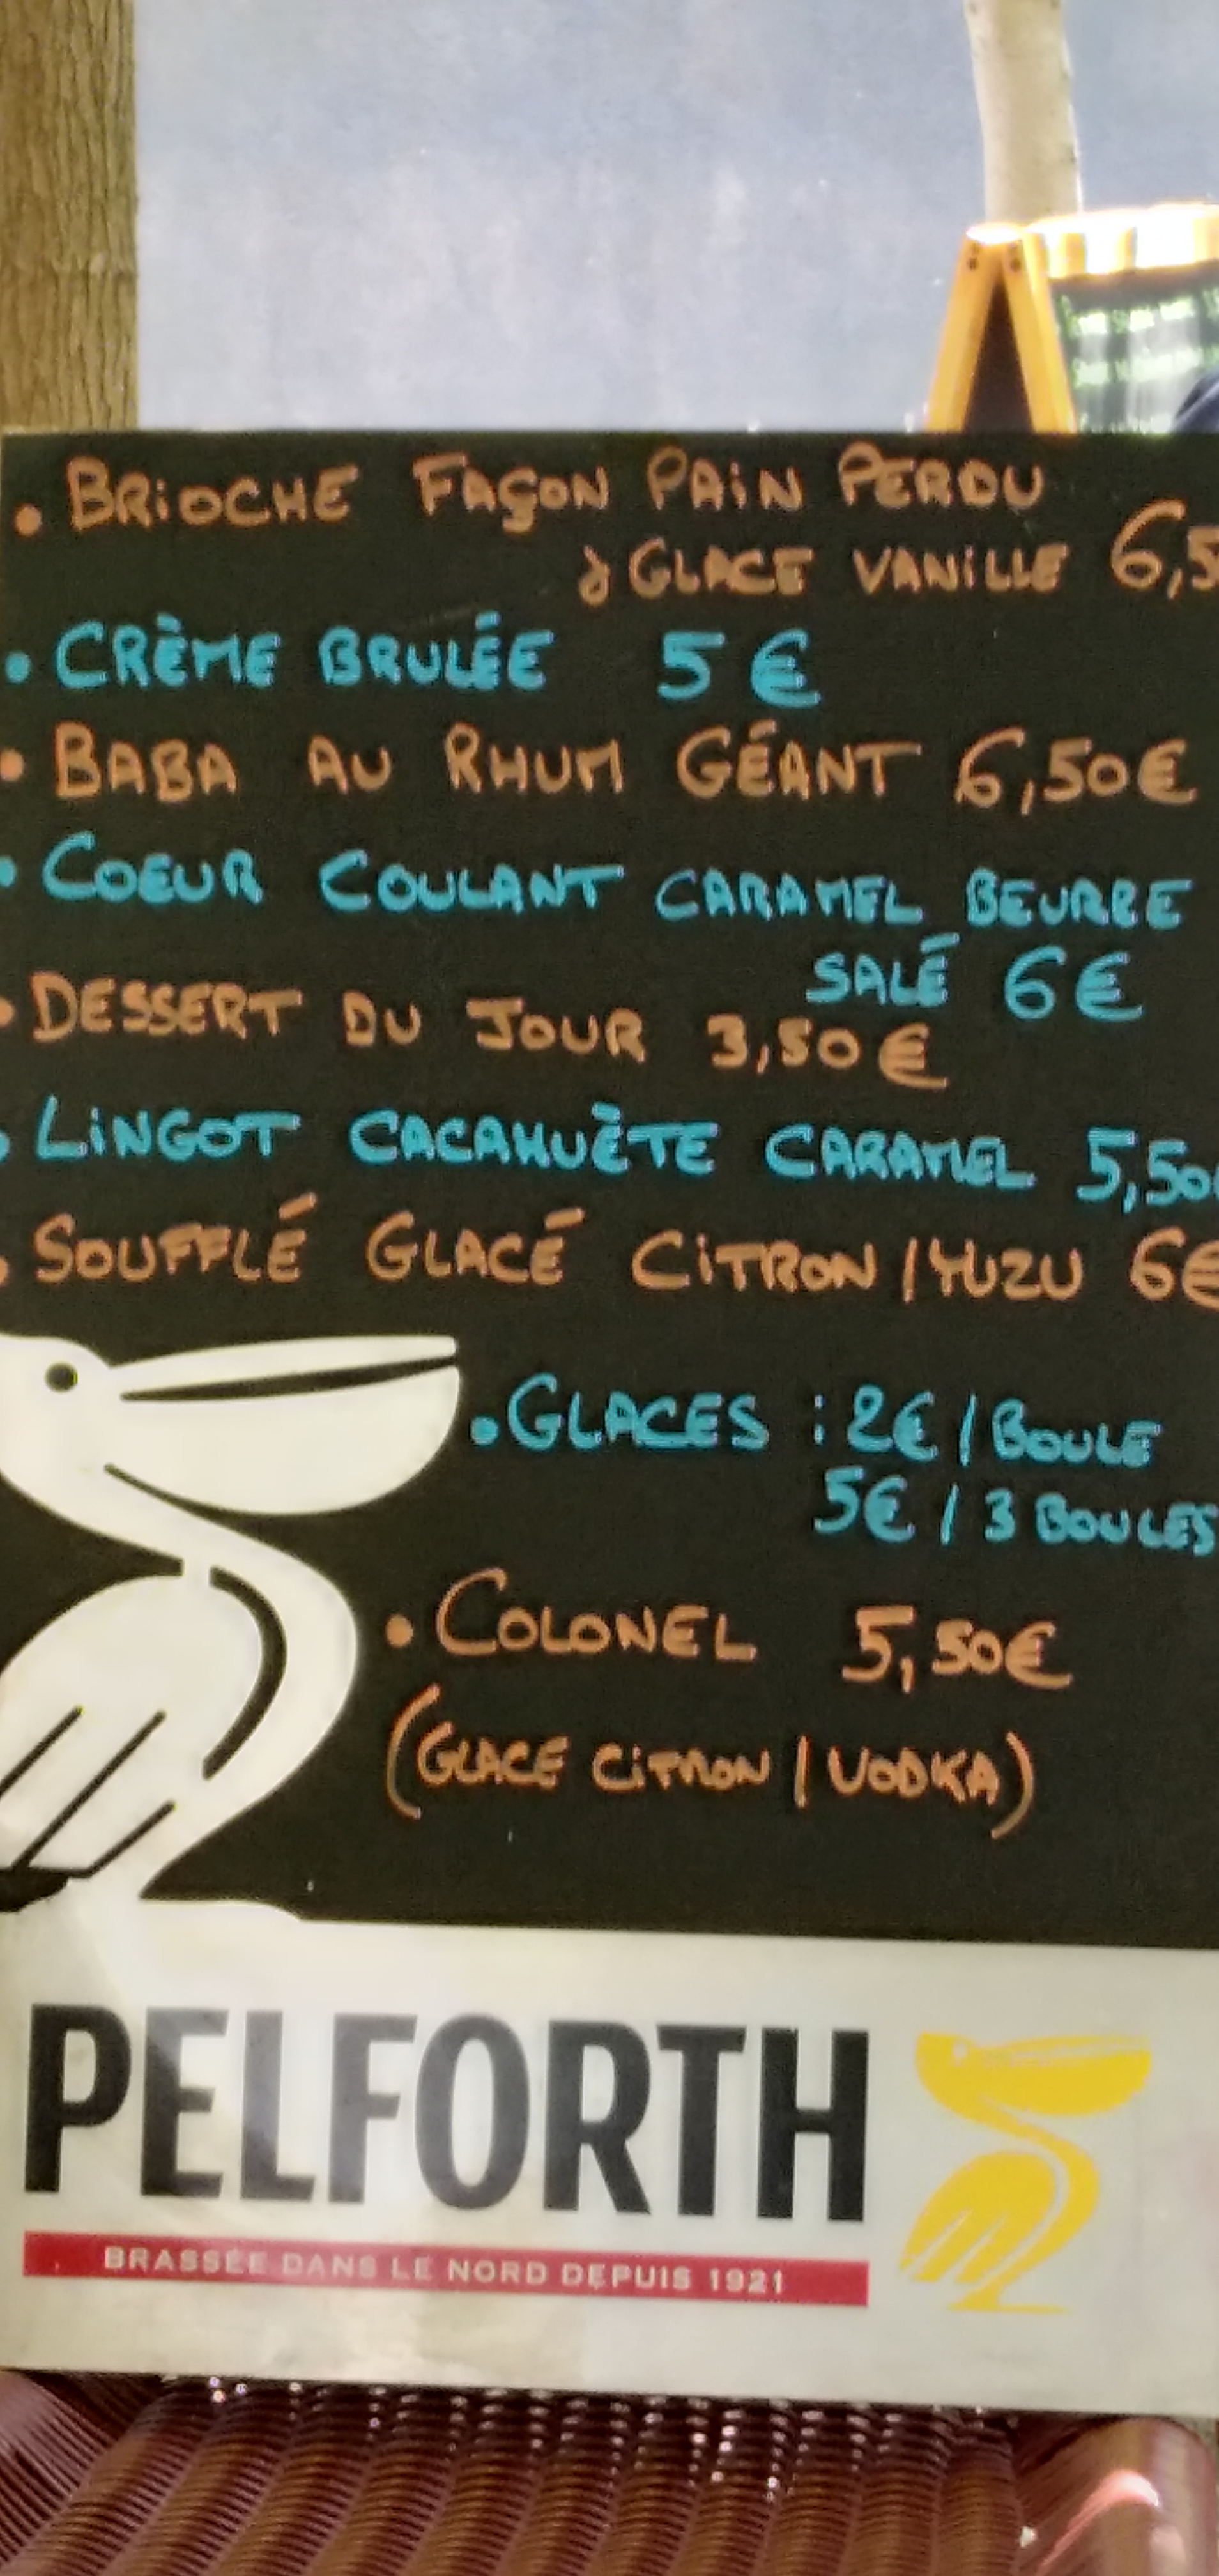 • BRiOCHE FAÇON PAiN PERDU
& GLACE VANiLLE 6,5
• CRÈME BRULÉE 5 €
• BABA AU RHUM GÉANT 6,50€
• COEUR COULANT CARAMEL BEURRE
SALÉ 6€
• DESSERT DU JOUR 3,50€
• LiNGOT CACAHUÈTE CARAMEL 5,50
• SOUFFLÉ GLACÉ CiTRON / YUZU 6€
• GLACES : 2€ / BOULE
5€ / 3 BOULES
• COLONEL 5,50€
(GLACE CiTRON / VODKA)
PELFORTH
BRASSÉE DANS LE NORD DEPUIS 1921